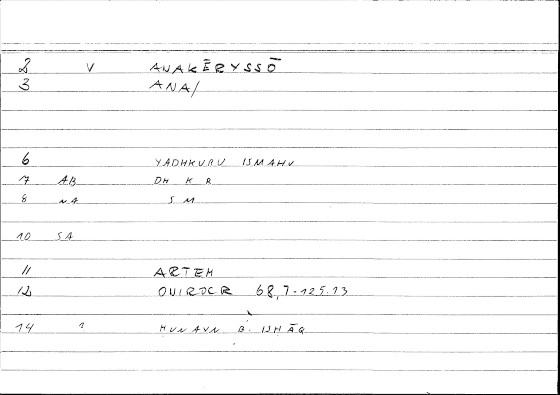 2 V ANAKĒRYSSŌ
3 ANA/
6 YADHKURU ISMAHU
7 AB DH K R
8 NA S M
10 SA
11 ARTEM
12 ONIROCR 68,7-125.13
14 1 HUNAYN B. ISHĀQ